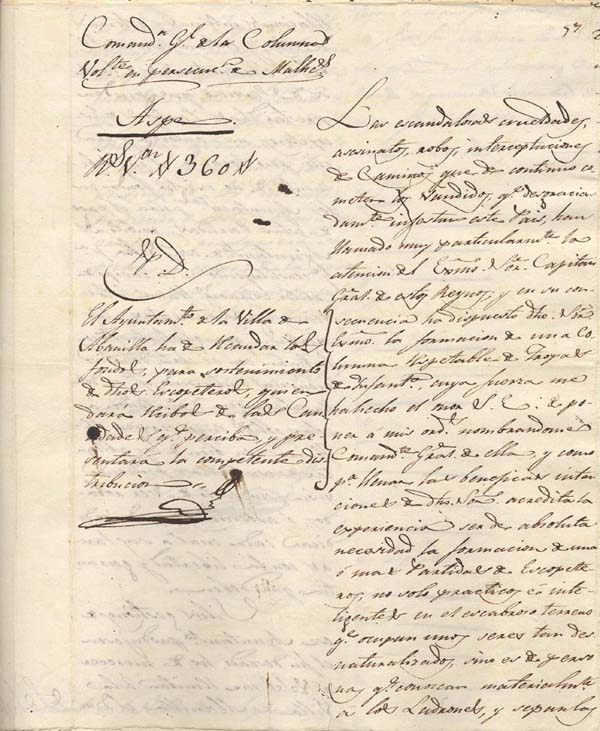 57
Comand.n G.l de la Columna
Vol.te en persecuc.n de Malhe.s
Aspe.
N 360 N
P. D.
El Ayuntam.to de la Villa de
Abanilla ha de recaudar los
fondos, para sostenimiento
de dhos Escopeteros, quien
dará recibos de las Can
tidades q.e perciba, y pre
sentará la competente dis
tribucion
Las escandalosas crueldades,
asesinatos, robos, interceptaciones
de Caminos que de continuo co
meten los Vandidos, q.e desgracia
dam.te infestan este Pais, han
llamado muy particularm.te la
atencion del Exmo. S.or Capitan
Gral. de estos Reynos, y en su con
secuencia ha dispuesto dho. S.or
Exmo. la formacion de una Co
lumna respetable de Tropas
de Infant.a cuya fuerza me
ha hecho el onor S. E. de po
ner á mis ord.s nombrandome
Comand.te Gral. de ella, y como
p.a llenar las beneficas inten
ciones de dho. S.or acredita la
experiencia ser de absoluta
necesidad la formacion de una
ó mas Partidas de Escopete
ros, no solo practicos é in
teligentes en el escabroso terreno
q.e ocupan unos seres tan des
naturalizados, sino es de perso
nas q.e conoscan materialm.te
a los Ladrones, y sepan los